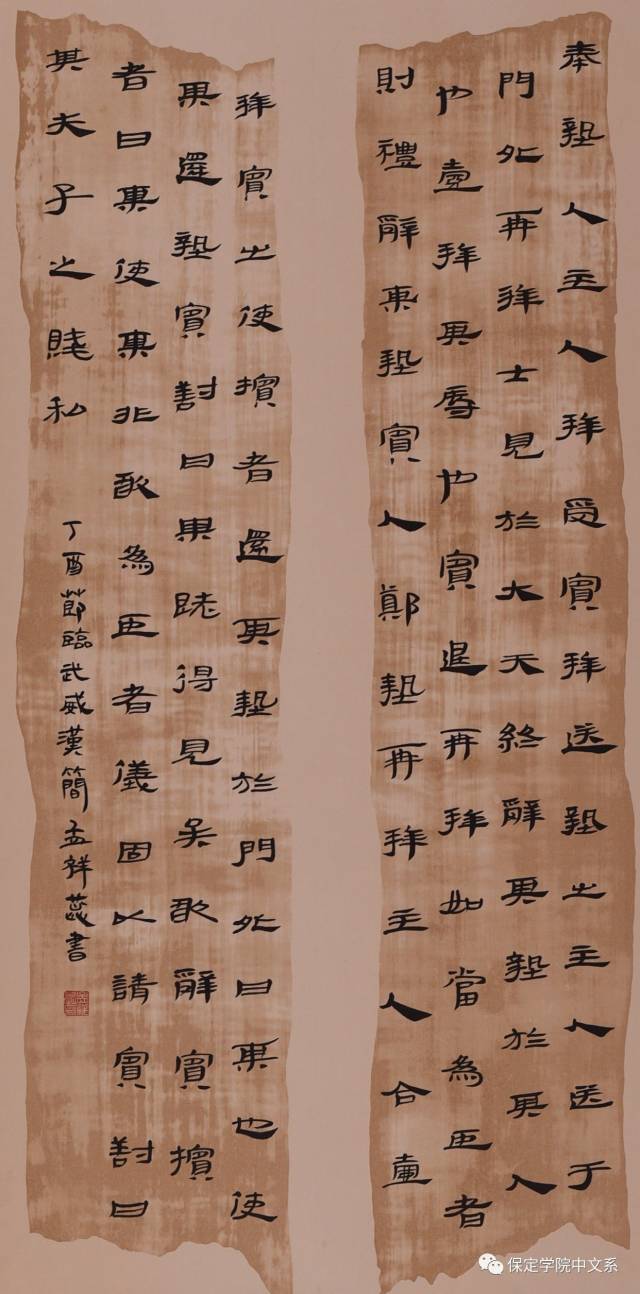 奉摯人主人拜受賓拜送摯之主人送于
門外再拜士見於大夫終辭其摯於其入
也壹拜其辱也賓退再拜如當為臣者
則禮辭其摯賓入鄭摯再拜主人合壹
拜賓之使擯者還其摯於門外曰某也使
某還摯賓對曰某既得見矣敢辭賓擯
者曰某使某非敢為臣者儀固以請賓對曰
其夫子之賤私
丁酉節臨武威漢簡孟祥蕊書
保定学院中文系